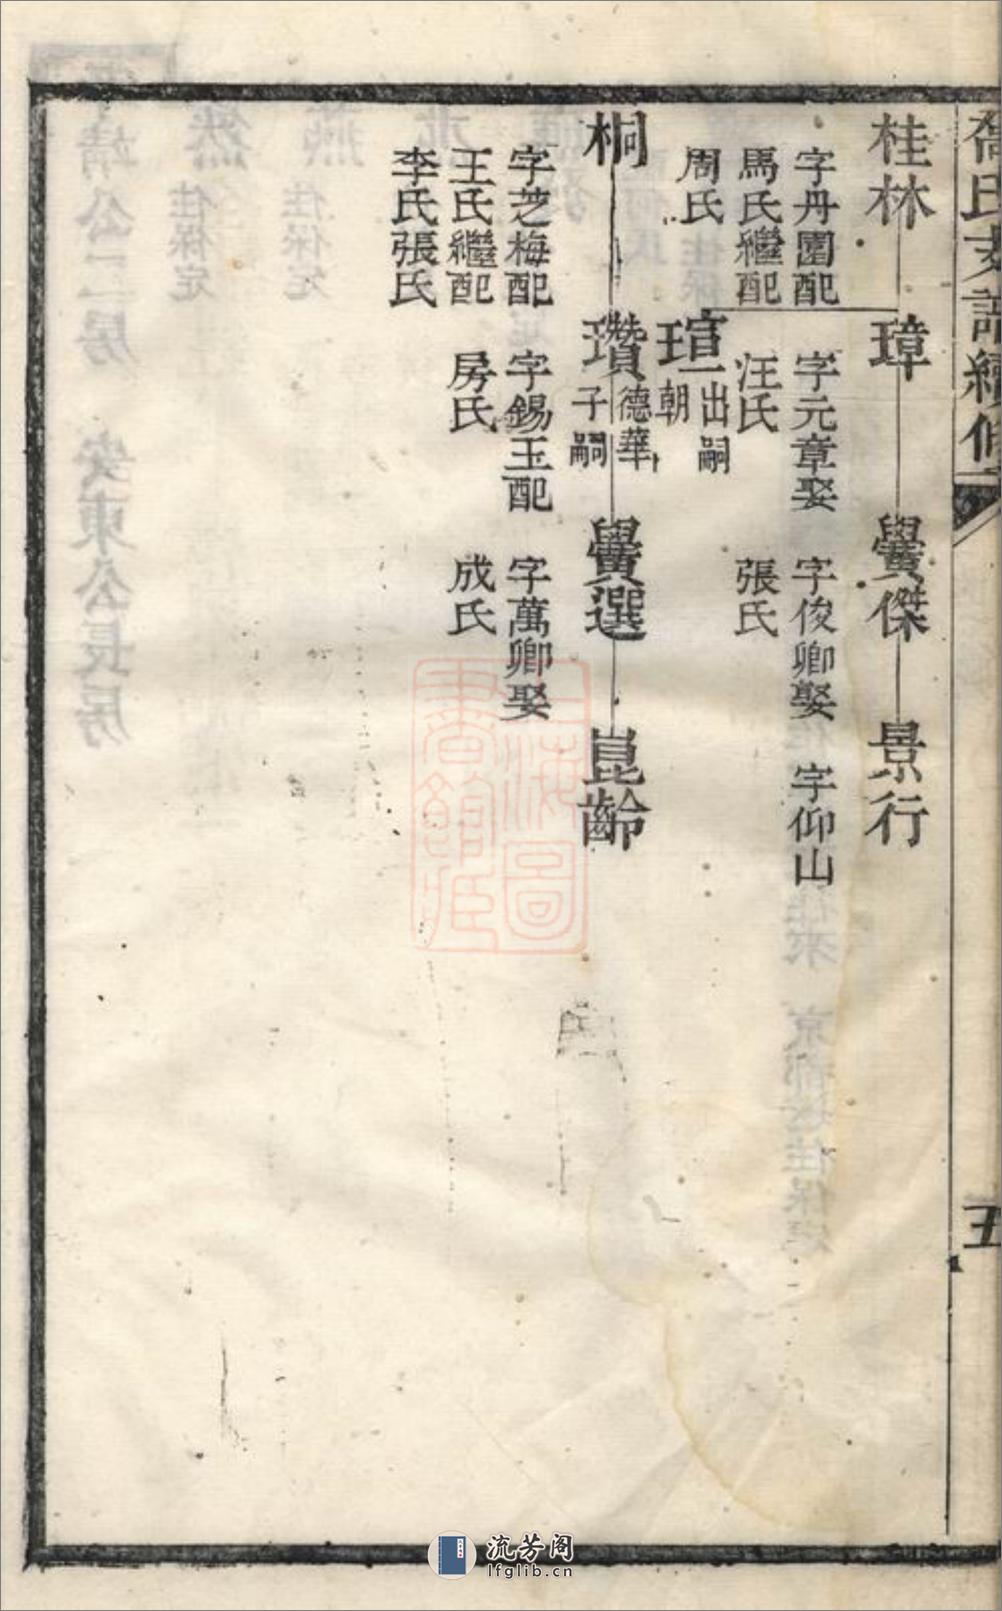 喬氏支譜續修
五
桂林
璋
黌傑
景行
字丹園配
字元章娶
字俊卿娶
字仰山
馬氏繼配
汪氏
張氏
周氏
瑄
出嗣
朝
桐
瓚
德華
子嗣
黌選
崑齡
字芝梅配
字錫玉配
字萬卿娶
王氏繼配
房氏
成氏
李氏張氏
上海圖
書館藏
流芳阁
lfglib.cn